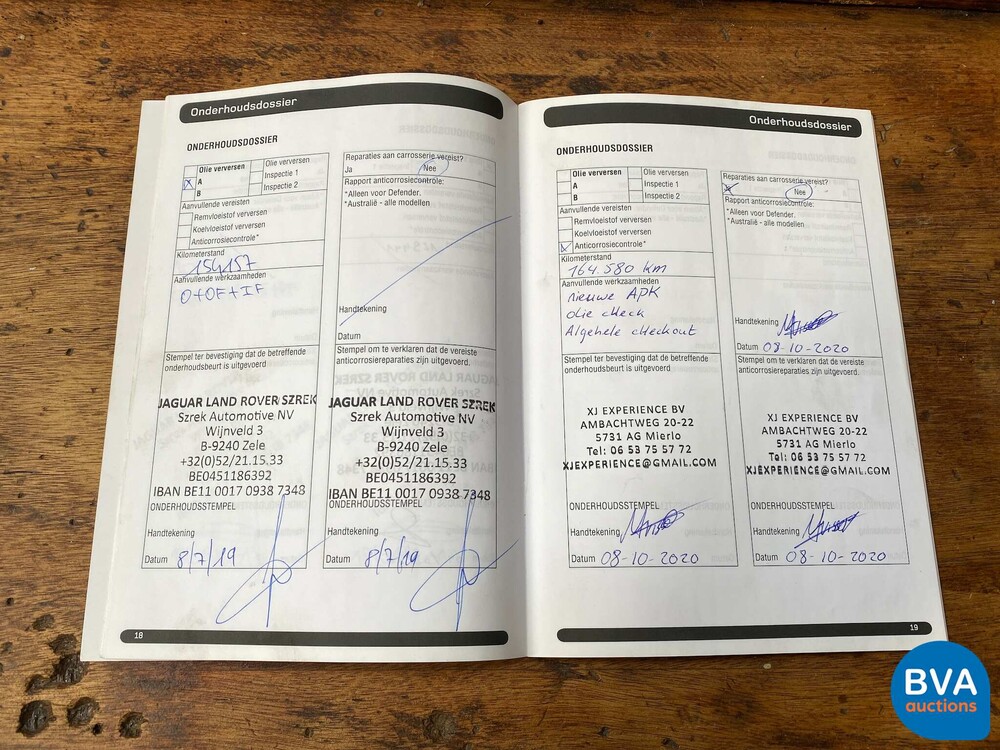 Onderhoudsdossier
ONDERHOUDSDOSSIER
Olie verversen
Olie verversen
X A
Inspectie 1
B
Inspectie 2
Aanvullende vereisten
Remvloeistof verversen
Koelvloeistof verversen
Anticorrosiecontrole*
Kilometerstand
154157
Aanvullende werkzaamheden
O+OF+IF
Stempel ter bevestiging dat de betreffende
onderhoudsbeurt is uitgevoerd
JAGUAR LAND ROVER SZREK
Szrek Automotive NV
Wijnveld 3
B-9240 Zele
+32(0)52/21.15.33
BE0451186392
IBAN BE11 0017 0938 7348
ONDERHOUDSSTEMPEL
Handtekening
Datum 8/7/19
Reparaties aan carrosserie vereist?
Ja Nee
Rapport anticorrosiecontrole:
*Alleen voor Defender.
*Australië - alle modellen
Handtekening
Datum
Stempel om te verklaren dat de vereiste
anticorrosiereparaties zijn uitgevoerd.
JAGUAR LAND ROVER SZREK
Szrek Automotive NV
Wijnveld 3
B-9240 Zele
+32(0)52/21.15.33
BE0451186392
IBAN BE11 0017 0938 7348
ONDERHOUDSSTEMPEL
Handtekening
Datum 8/7/19
18
Onderhoudsdossier
ONDERHOUDSDOSSIER
Olie verversen
Olie verversen
A
Inspectie 1
B
Inspectie 2
Aanvullende vereisten
Remvloeistof verversen
Koelvloeistof verversen
X Anticorrosiecontrole*
Kilometerstand
164.580 km
Aanvullende werkzaamheden
nieuwe APK
olie check
Algehele checkout
Stempel ter bevestiging dat de betreffende
onderhoudsbeurt is uitgevoerd
XJ EXPERIENCE BV
AMBACHTWEG 20-22
5731 AG Mierlo
Tel: 06 53 75 57 72
XJEXPERIENCE@GMAIL.COM
ONDERHOUDSSTEMPEL
Handtekening
Datum 08-10-2020
Reparaties aan carrosserie vereist?
Nee
Rapport anticorrosiecontrole:
*Alleen voor Defender.
*Australië - alle modellen
Handtekening
Datum 08-10-2020
Stempel om te verklaren dat de vereiste
anticorrosiereparaties zijn uitgevoerd.
XJ EXPERIENCE BV
AMBACHTWEG 20-22
5731 AG Mierlo
Tel: 06 53 75 57 72
XJEXPERIENCE@GMAIL.COM
ONDERHOUDSSTEMPEL
Handtekening
Datum 08-10-2020
19
BVA
auctions